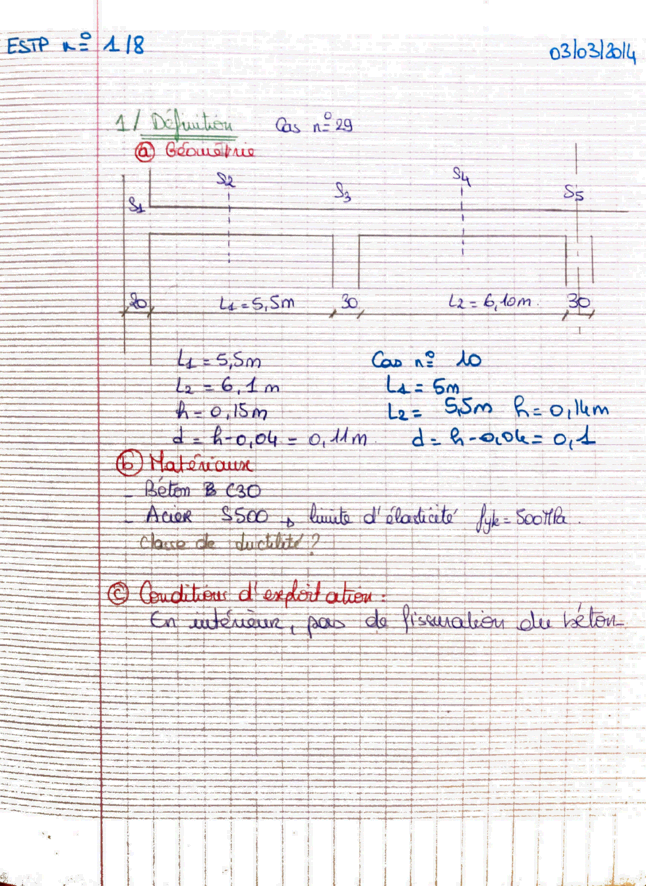 ESTP n° 1/8
03/03/2014
1/ Définition Cas n°29
ⓐ Géométrie
S1 S2 S3 S4 S5
20 L1=5,5m 30 L2=6,10m. 30
L1=5,5m Cas n° 10
L2=6,1m L1=5m
h=0,15m L2= 5,5m h=0,14m
d=h-0,04=0,11m d=h-0,04=0,1
ⓑ Matériaux
- Béton B C30
- Acier S500 → limite d'élasticité fyk=500MPa.
Classe de ductilité?
ⓒ Conditions d'exploitation:
En intérieur, pas de fissuration du béton